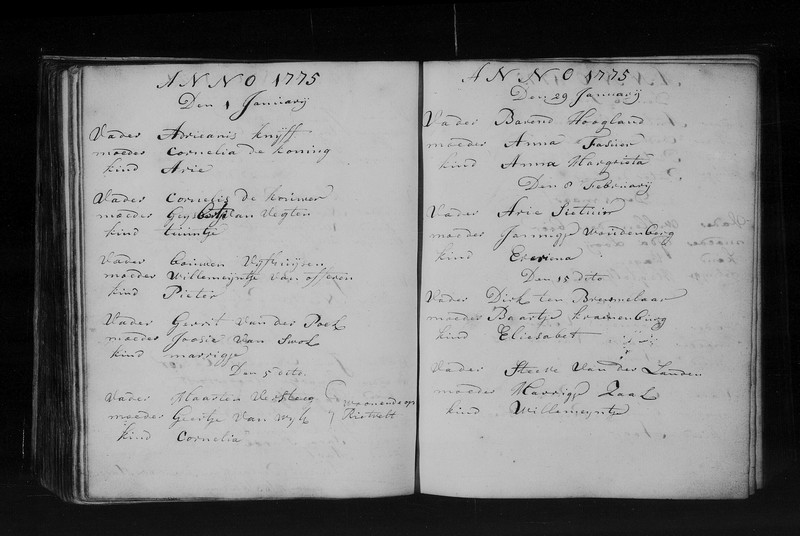 ANNO 1775
Den 1 Januarij
Vader Adrieanis Knijff
moeder Cornelia de Koning
kind Arie
Vader Cornelis de Kruwer
moeder van Vegten
kind
Vader Vijfhuijsen
moeder Willemeijntje van
kind Pieter
Vader Gerrit van der Poel
moeder Joosie van Swol
kind Marrigje
Den 5 dito
Vader Maarten Versteeg
moeder Geertje van Wijk
woonende op Rietvelt
kind Cornelia
ANNO 1775
Den 29 Januarij
Vader Barend Hoogland
moeder Anna
kind Anna Margrieta
Den 8 Februarij
Vader Arie
moeder Jannigje Woudenberg
kind
Den 15 dito
Vader Dirk ten Bremmelaar
moeder Baartje Kranenburg
kind Eliesabet
Vader Steeve van der Landen
moeder Marrigje Zaal
kind Willemeijntje